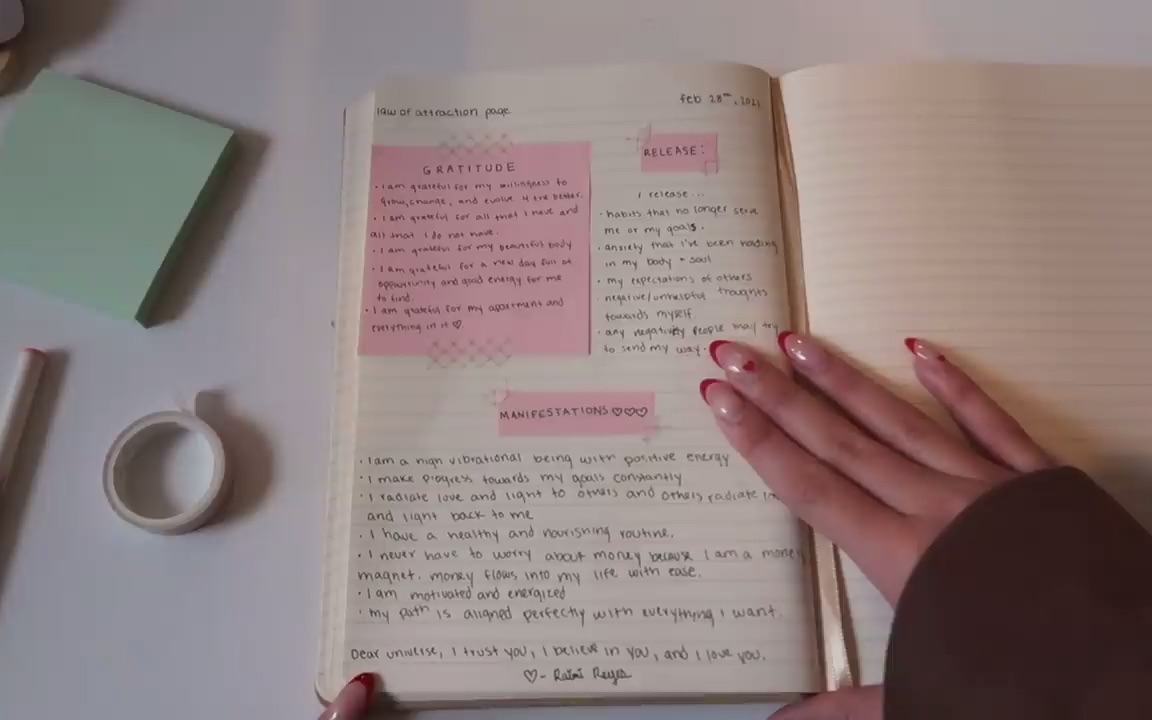 law of attraction page
feb 28th, 2021
GRATITUDE
• I am grateful for my willingness to
grow, change, and evolve 4 the better.
• I am grateful for all that I have and
all that I do not have.
• I am grateful for my beautiful body
• I am grateful for a new day full of
opportunity and good energy for me
to find.
• I am grateful for my apartment and
everything in it ♡
RELEASE:
I release...
• habits that no longer serve
me or my goals.
• anxiety that I've been holding
in my body + soul
• my expectations of others
• negative/unhelpful thoughts
towards myself
• any negativity people may try
to send my way.
MANIFESTATIONS ♡♡♡
• I am a high vibrational being with positive energy
• I make progress towards my goals constantly
• I radiate love and light to others and others radiate
and light back to me
• I have a healthy and nourishing routine.
• I never have to worry about money because I am a money
magnet. money flows into my life with ease.
• I am motivated and energized
• my path is aligned perfectly with everything I want.
Dear universe, I trust you, I believe in you, and I love you.
♡ - Raimi Reyes